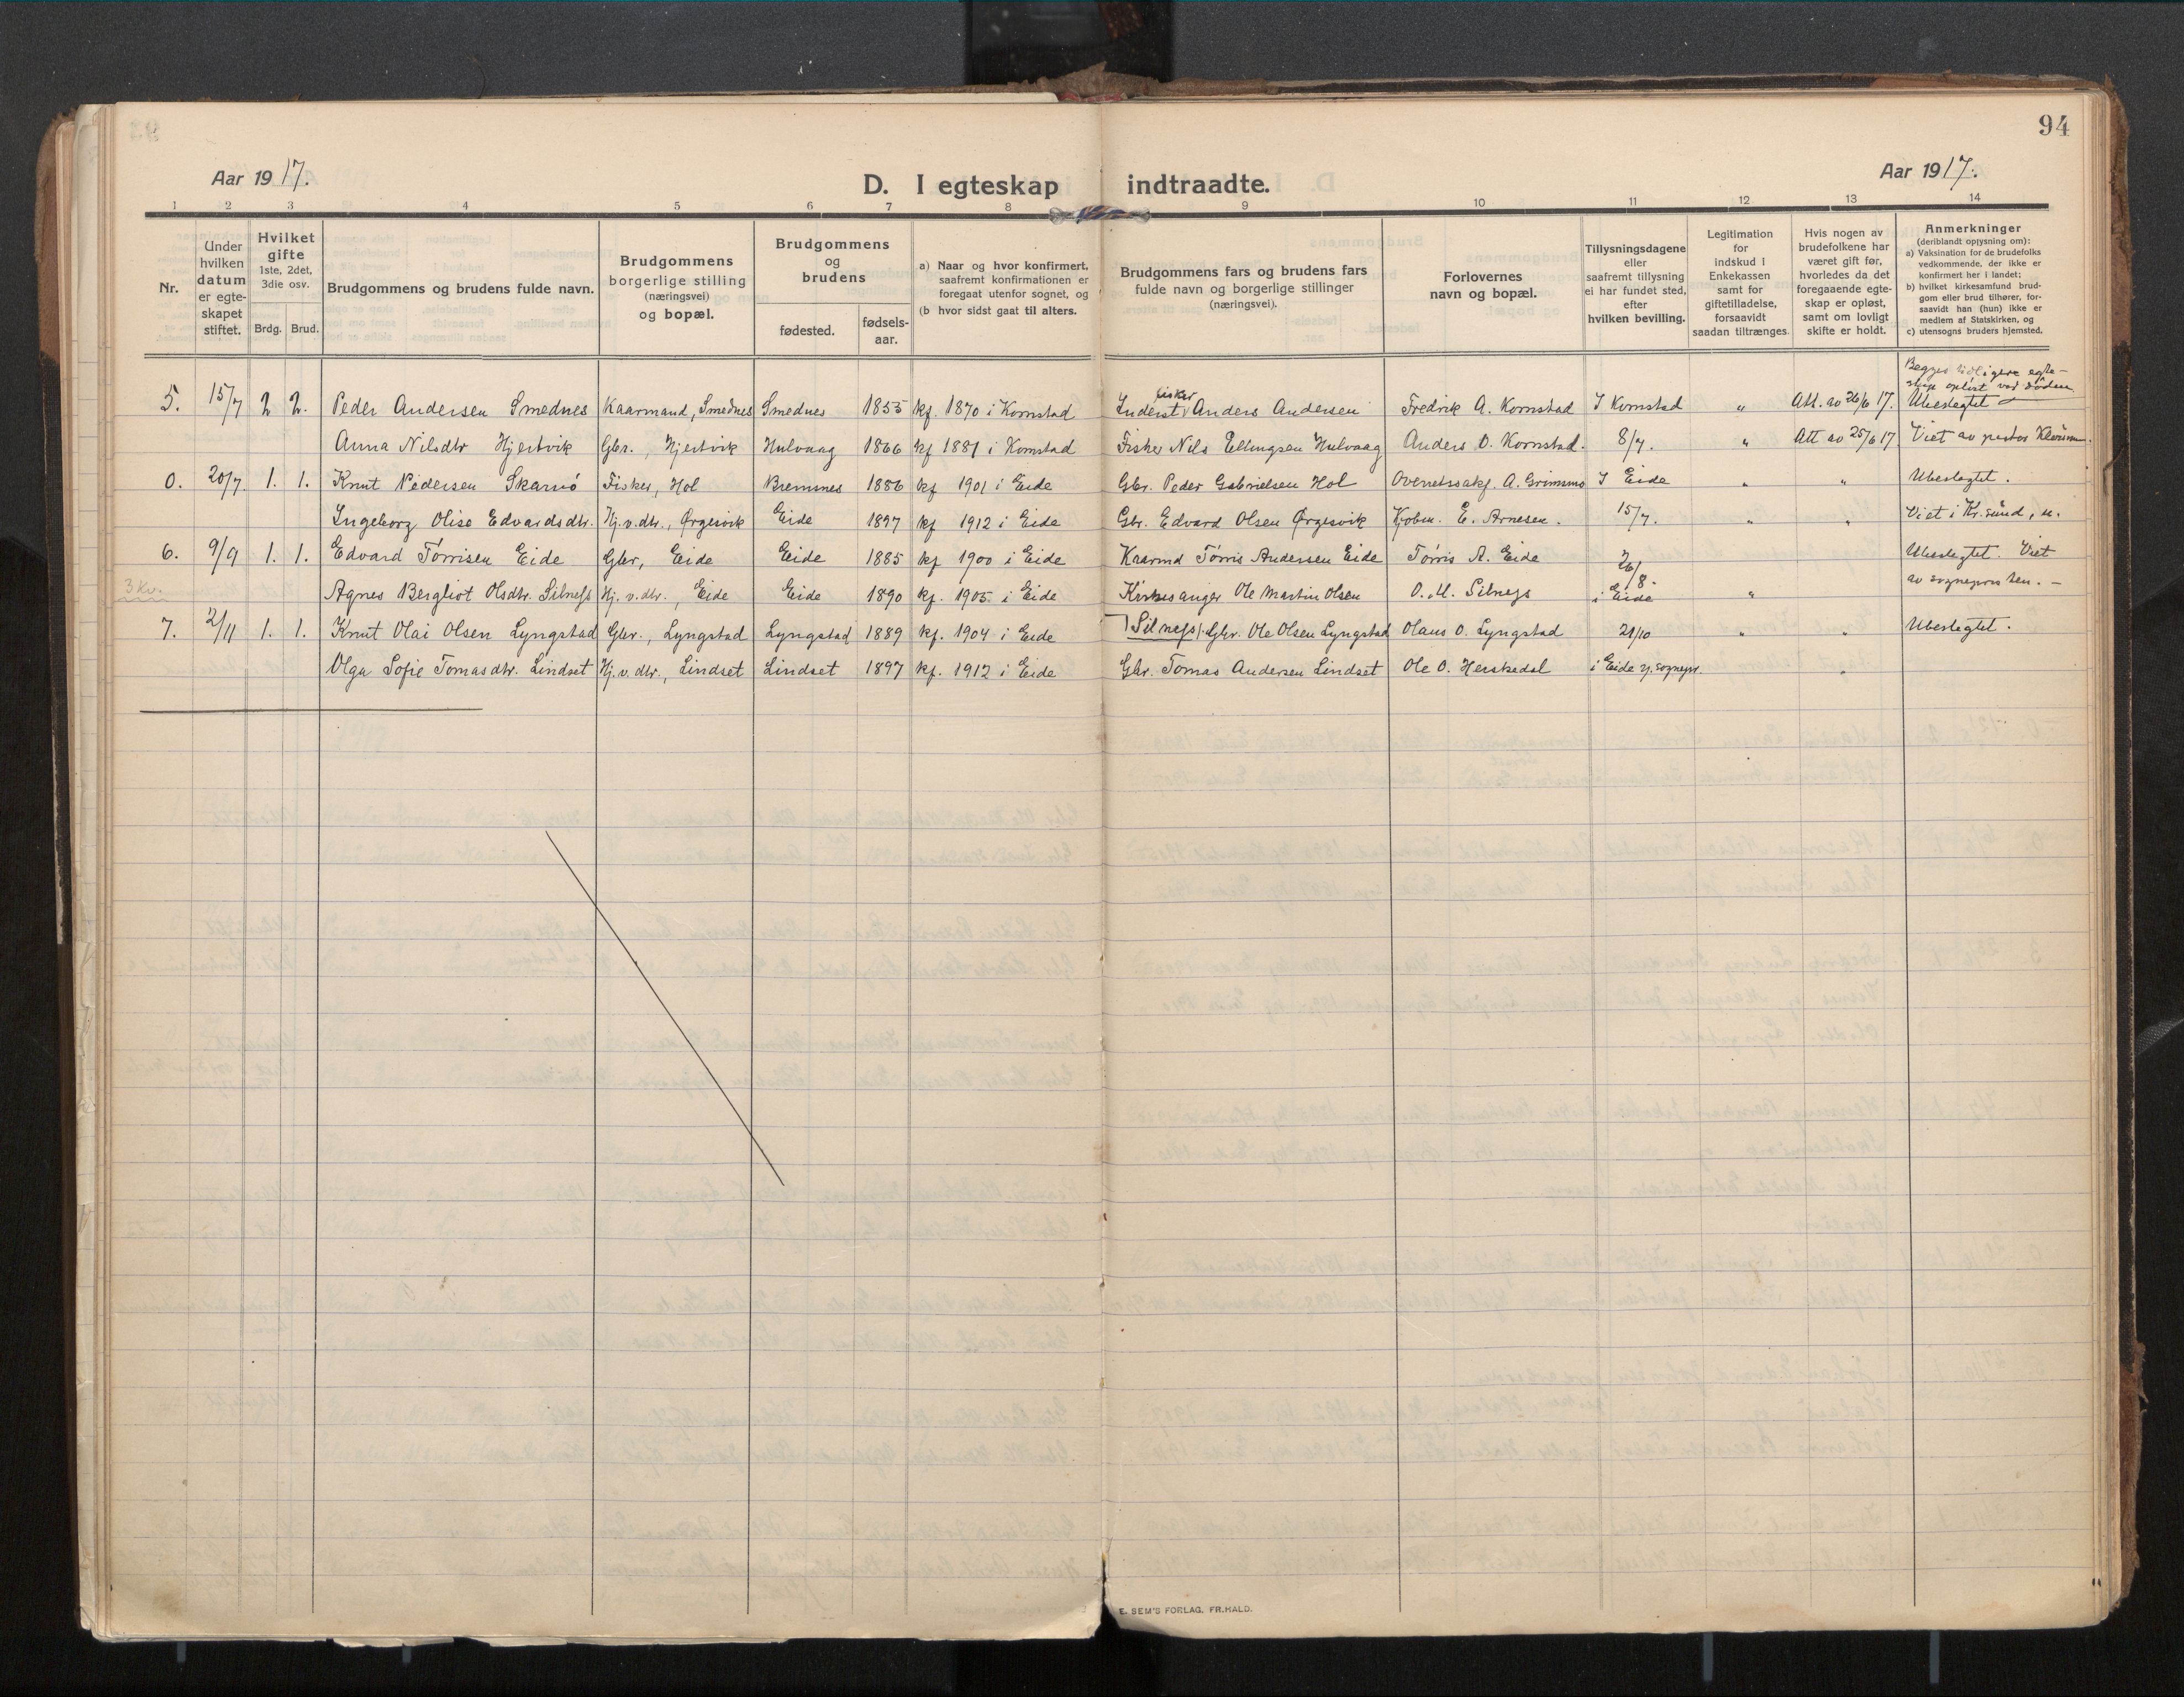 94
Aar 1917.
D. I egteskap indtraadte.
Aar 1917.
1 2 3 4 5 6 7 8 9 10 11 12 13 14
Nr.
Under
hvilken
datum
er egte-
skapet
stiftet.
Hvilket
gifte
1ste, 2det,
3die osv.
Brdg. Brud.
Brudgommens og brudens fulde navn.
Brudgommens
borgerlige stilling
(næringsvei)
og bopæl.
Brudgommens
og
brudens
fødested.
fødsels-
aar.
a) Naar og hvor konfirmert,
saafremt konfirmationen er
foregaat utenfor sognet, og
(b hvor sidst gaat til alters.
Brudgommens fars og brudens fars
fulde navn og borgerlige stillinger
(næringsvei).
Forlovernes
navn og bopæl.
Tillysningsdagene
eller
saafremt tillysning
ei har fundet sted,
efter
hvilken bevilling.
Legitimation
for
indskud i
Enkekassen
samt for
giftetilladelse,
forsaavidt
saadan tiltrænges.
Hvis nogen av
brudefolkene har
været gift før,
hvorledes da det
foregaaende egte-
skap er opløst,
samt om lovligt
skifte er holdt.
Anmerkninger
(deriblandt oplysning om):
a) Vaksination for de brudefolks
vedkommende, der ikke er
konfirmert her i landet;
b) hvilket kirkesamfund brud-
gom eller brud tilhører, for-
saavidt han (hun) ikke er
medlem af Statskirken, og
c) utensogns bruders hjemsted.
Begges tidligere egte-
skap opløst ved døden
fisker
5. 15/7 2 2. Peder Andersen Smednes Kaarmand, Smednes Smednes 1855 kf. 1870 i Kornstad Inderst Anders Andersen Fredrik A. Kornstad I Kornstad " Att. av 26/6 17. Ubeslegtet
Anna Nilsdtr Hjertvik Gbr., Hjertvik Hulvaag 1866 kf 1881 i Kornstad Fisker Nils Ellingsen Hulvaag Anders O. Kornstad. 8/7. " Att av 25/6 17 Viet av pastor
0. 20/7. 1. 1. Knut Pedersen Skarsø Fisker, Hol Bremsnes 1886 kf 1901 i Eide Gbr. Peder Gabrielsen Hol Overretssakf. A. Grimsmo I Eide " " Ubeslegtet.
Ingeborg Olise Edvardsdtr. Hj.v.dtr., Ørgesvik Eide 1897 kf 1912 i Eide Gbr. Edvard Olsen Ørgesvik Kjøbm. E. Arnesen. 15/7. " " Viet i Kr.sund, n.
6. 9/9 1. 1. Edvard Tørrisen Eide Gbr, Eide Eide 1885 kf 1900 i Eide Kaarmd Tørris Andersen Eide Tørris A. Eide 26/8. Ubeslegtet. Viet
3 Kv. Agnes Bergliot Olsdtr. Silness Hj. v. dtr., Eide Eide 1890 kf. 1905 i Eide Kirkesanger Ole Martin Olsen O. M. Silness i Eide " av sognepresten. —
7. 2/11 1. 1. Knut Olai Olsen Lyngstad Gbr., Lyngstad Lyngstad 1889 kf. 1904 i Eide Silness/. Gbr. Ole Olsen Lyngstad Olaus O. Lyngstad 21/10 " " Ubeslegtet.
Olga Sofie Tomasdtr. Lindset Hj. v. dtr., Lindset Lindset 1897 kf. 1912 i Eide Gbr. Tomas Andersen Lindset Ole O. Herskedal i Eide "
E. SEM'S FORLAG, FR.HALD.